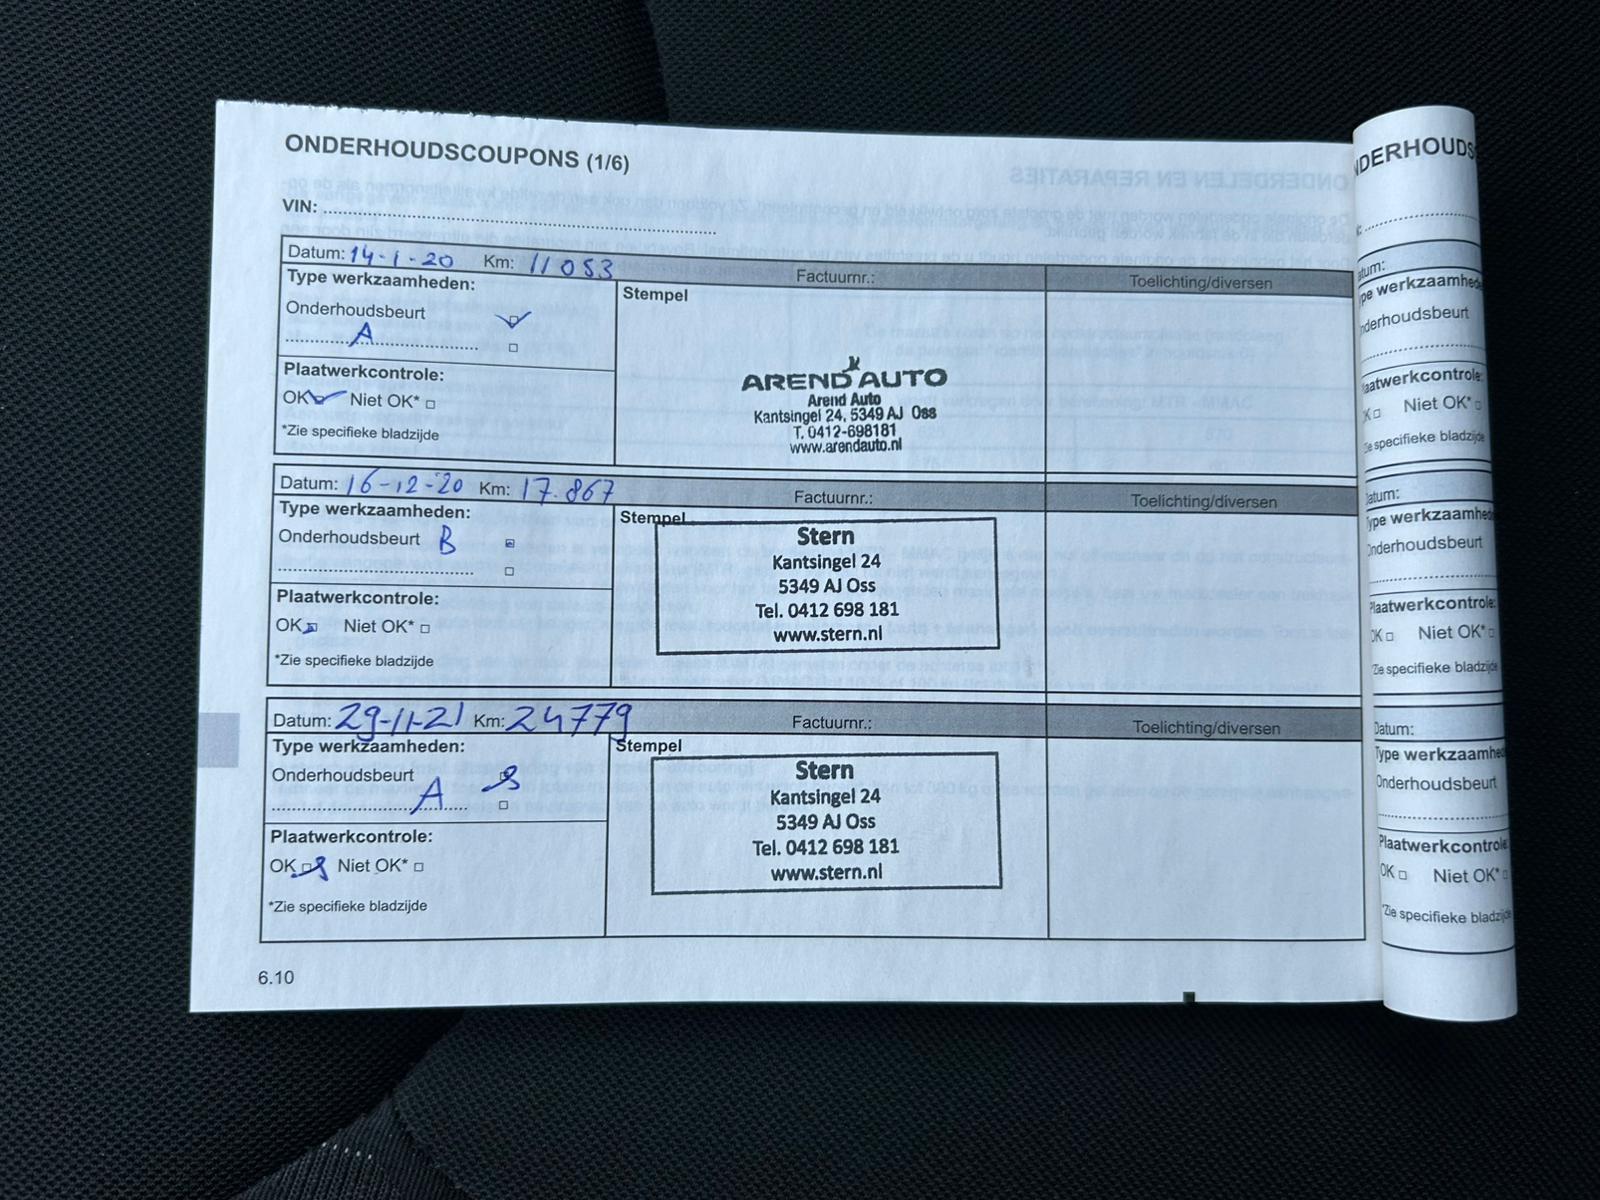 ONDERHOUDSCOUPONS (1/6)
VIN:
Datum: 14-1-20 Km: 11053 Factuurnr.: Toelichting/diversen
Type werkzaamheden:
Stempel
Onderhoudsbeurt
A
Plaatwerkcontrole:
OK Niet OK*
*Zie specifieke bladzijde
AREND AUTO
Arend Auto
Kantsingel 24, 5349 AJ Oss
T. 0412-698181
www.arendauto.nl
Datum: 16-12-20 Km: 17.867 Factuurnr.: Toelichting/diversen
Type werkzaamheden:
Stempel
Onderhoudsbeurt B
Plaatwerkcontrole:
OK Niet OK*
*Zie specifieke bladzijde
Stern
Kantsingel 24
5349 AJ Oss
Tel. 0412 698 181
www.stern.nl
Datum: 29-11-21 Km: 24779 Factuurnr.: Toelichting/diversen
Type werkzaamheden:
Stempel
Onderhoudsbeurt
A
Plaatwerkcontrole:
OK Niet OK*
*Zie specifieke bladzijde
Stern
Kantsingel 24
5349 AJ Oss
Tel. 0412 698 181
www.stern.nl
6.10
NDERHOUDS
atum:
pe werkzaamhed
nderhoudsbeurt
laatwerkcontrole:
K Niet OK*
ie specifieke bladzijde
atum:
Type werkzaamhed
Onderhoudsbeurt
Plaatwerkcontrole:
OK Niet OK*
Zie specifieke bladzijde
Datum:
Type werkzaamhed
Onderhoudsbeurt
Plaatwerkcontrole
OK Niet OK*
*Zie specifieke bladzijde